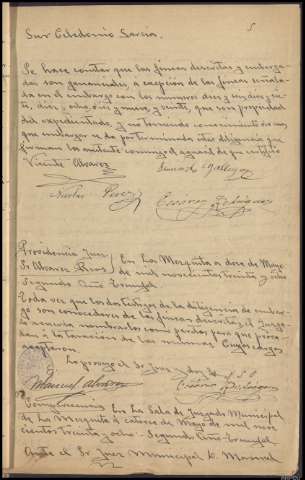 5
Sur Celedonio Garcia.
Se hace constar que las fincas descritas y embarga-
das son gananciales, a excepción de las fincas señala-
das en el embargo con los numeros dies y seis, dies y sie-
te, dies y ocho, dies y nueve, y veinte, que son propiedad
del expedientado, y no teniendo conocimiento de mas
que embargar se da por terminada esta diligencia que
firman los asistente conmigo el agente de que certifico
Vicente Alvarez
Nicolas Perez
Providencia Juez En La Mezquita a doce de Mayo
Sr Alvarez Rios de mil novecientos treinta y ocho
Segundo Año Triunfal.
Toda vez que los dos testigos de la diligencia de embar-
go son conocedores de las fincas descritas, el Juzga-
do acuerda nombrarlos como peritos, para que proce-
dan a la tasacion de las mismas
aceptaron.
Lo proveyo el Sr Juez y doy fe
Manuel Alvarez
Comparecencia En la Sala de Juzgado Municipal
de La Mezquita a catorce de Mayo de mil nove-
cientos treinta y ocho = Segundo Año triunfal
Ante el Sr Juez Municipal D. Manuel